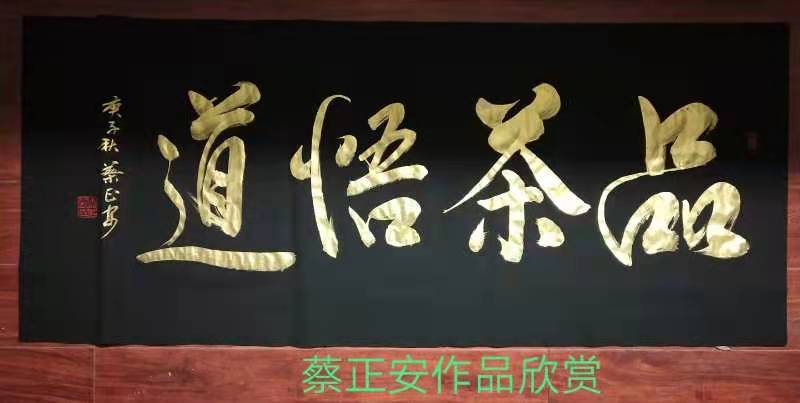 品茶悟道
庚子秋 蔡正安
蔡正安作品欣赏